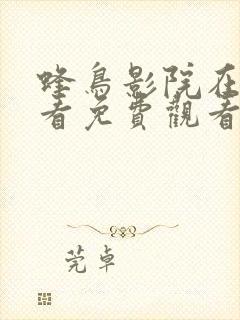 蜂鳥影院在
看免費觀看
莞卓